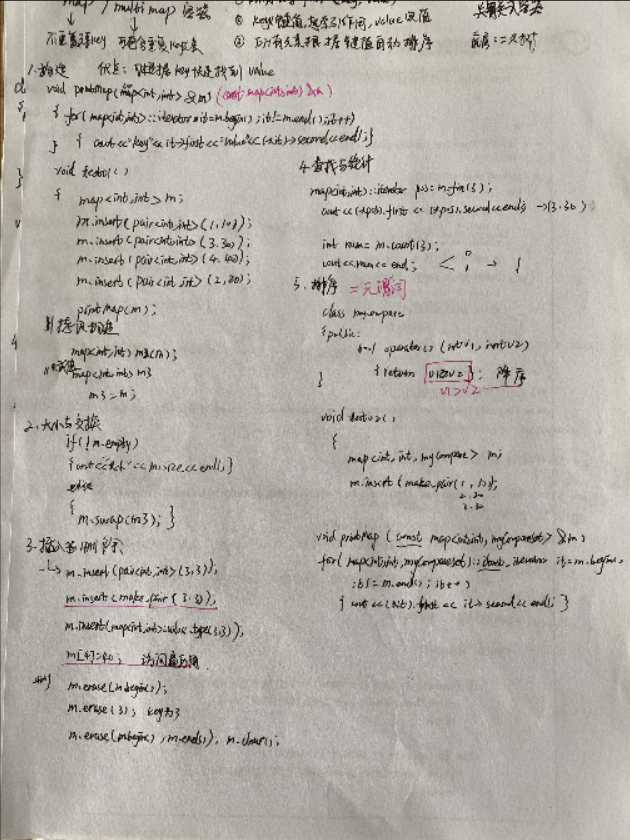 map / multimap 容器
不重复key 可包含重复key元素
② 所有元素根据键值自动排序
底层:二叉树
1.构造 优点:可根据key快速找到value
void printMap(map<int,int> &m) (const map<int,int> &m)
{ for(map<int,int>::iterator it=m.begin(); it!=m.end(); it++)
{ cout<<"key"<<it->first<<"value"<<(*it).second<<endl;}
}
void test01()
{
map<int,int> m;
m.insert(pair<int,int>(1,10));
m.insert(pair<int,int>(3,30));
m.insert(pair<int,int>(4,40));
m.insert(pair<int,int>(2,20));
printMap(m);
//拷贝构造
map<int,int> m2(m);
map<int,int> m3
m3=m;
}
2.大小与交换
if(!m.empty)
{cout<< <<m.size<<endl;}
else
{
m.swap(m3); }
3.插入与删除
m.insert(pair<int,int>(3,3));
m.insert(make_pair(3,3));
m.insert(map<int,int>::value_type(3,3));
m[4]=40; 访问
m.erase(m.begin());
m.erase(3); key为3
m.erase(m.begin(),m.end()), m.clear();
4.查找与统计
map<int,int>::iterator pos=m.find(3);
cout<<(*pos).first<<(*pos).second<<endl; →(3,30)
int num=m.count(3);
cout<<num<<endl; < 0
1
5.排序 =二元谓词
class myCompare
{public:
bool operator()(int v1, int v2)
{return v1>v2}; 降序
v1>v2
}
void test02()
{
map<int,int,myCompare> m;
m.insert(make_pair(1,10));
2.20
3.30
void printMap(const map<int,int,myCompareset> &m)
for(map<int,int,myCompareset>::const_iterator it=m.begin;
it!=m.end(); it++)
{cout<<(*it).first<<it->second<<endl; }